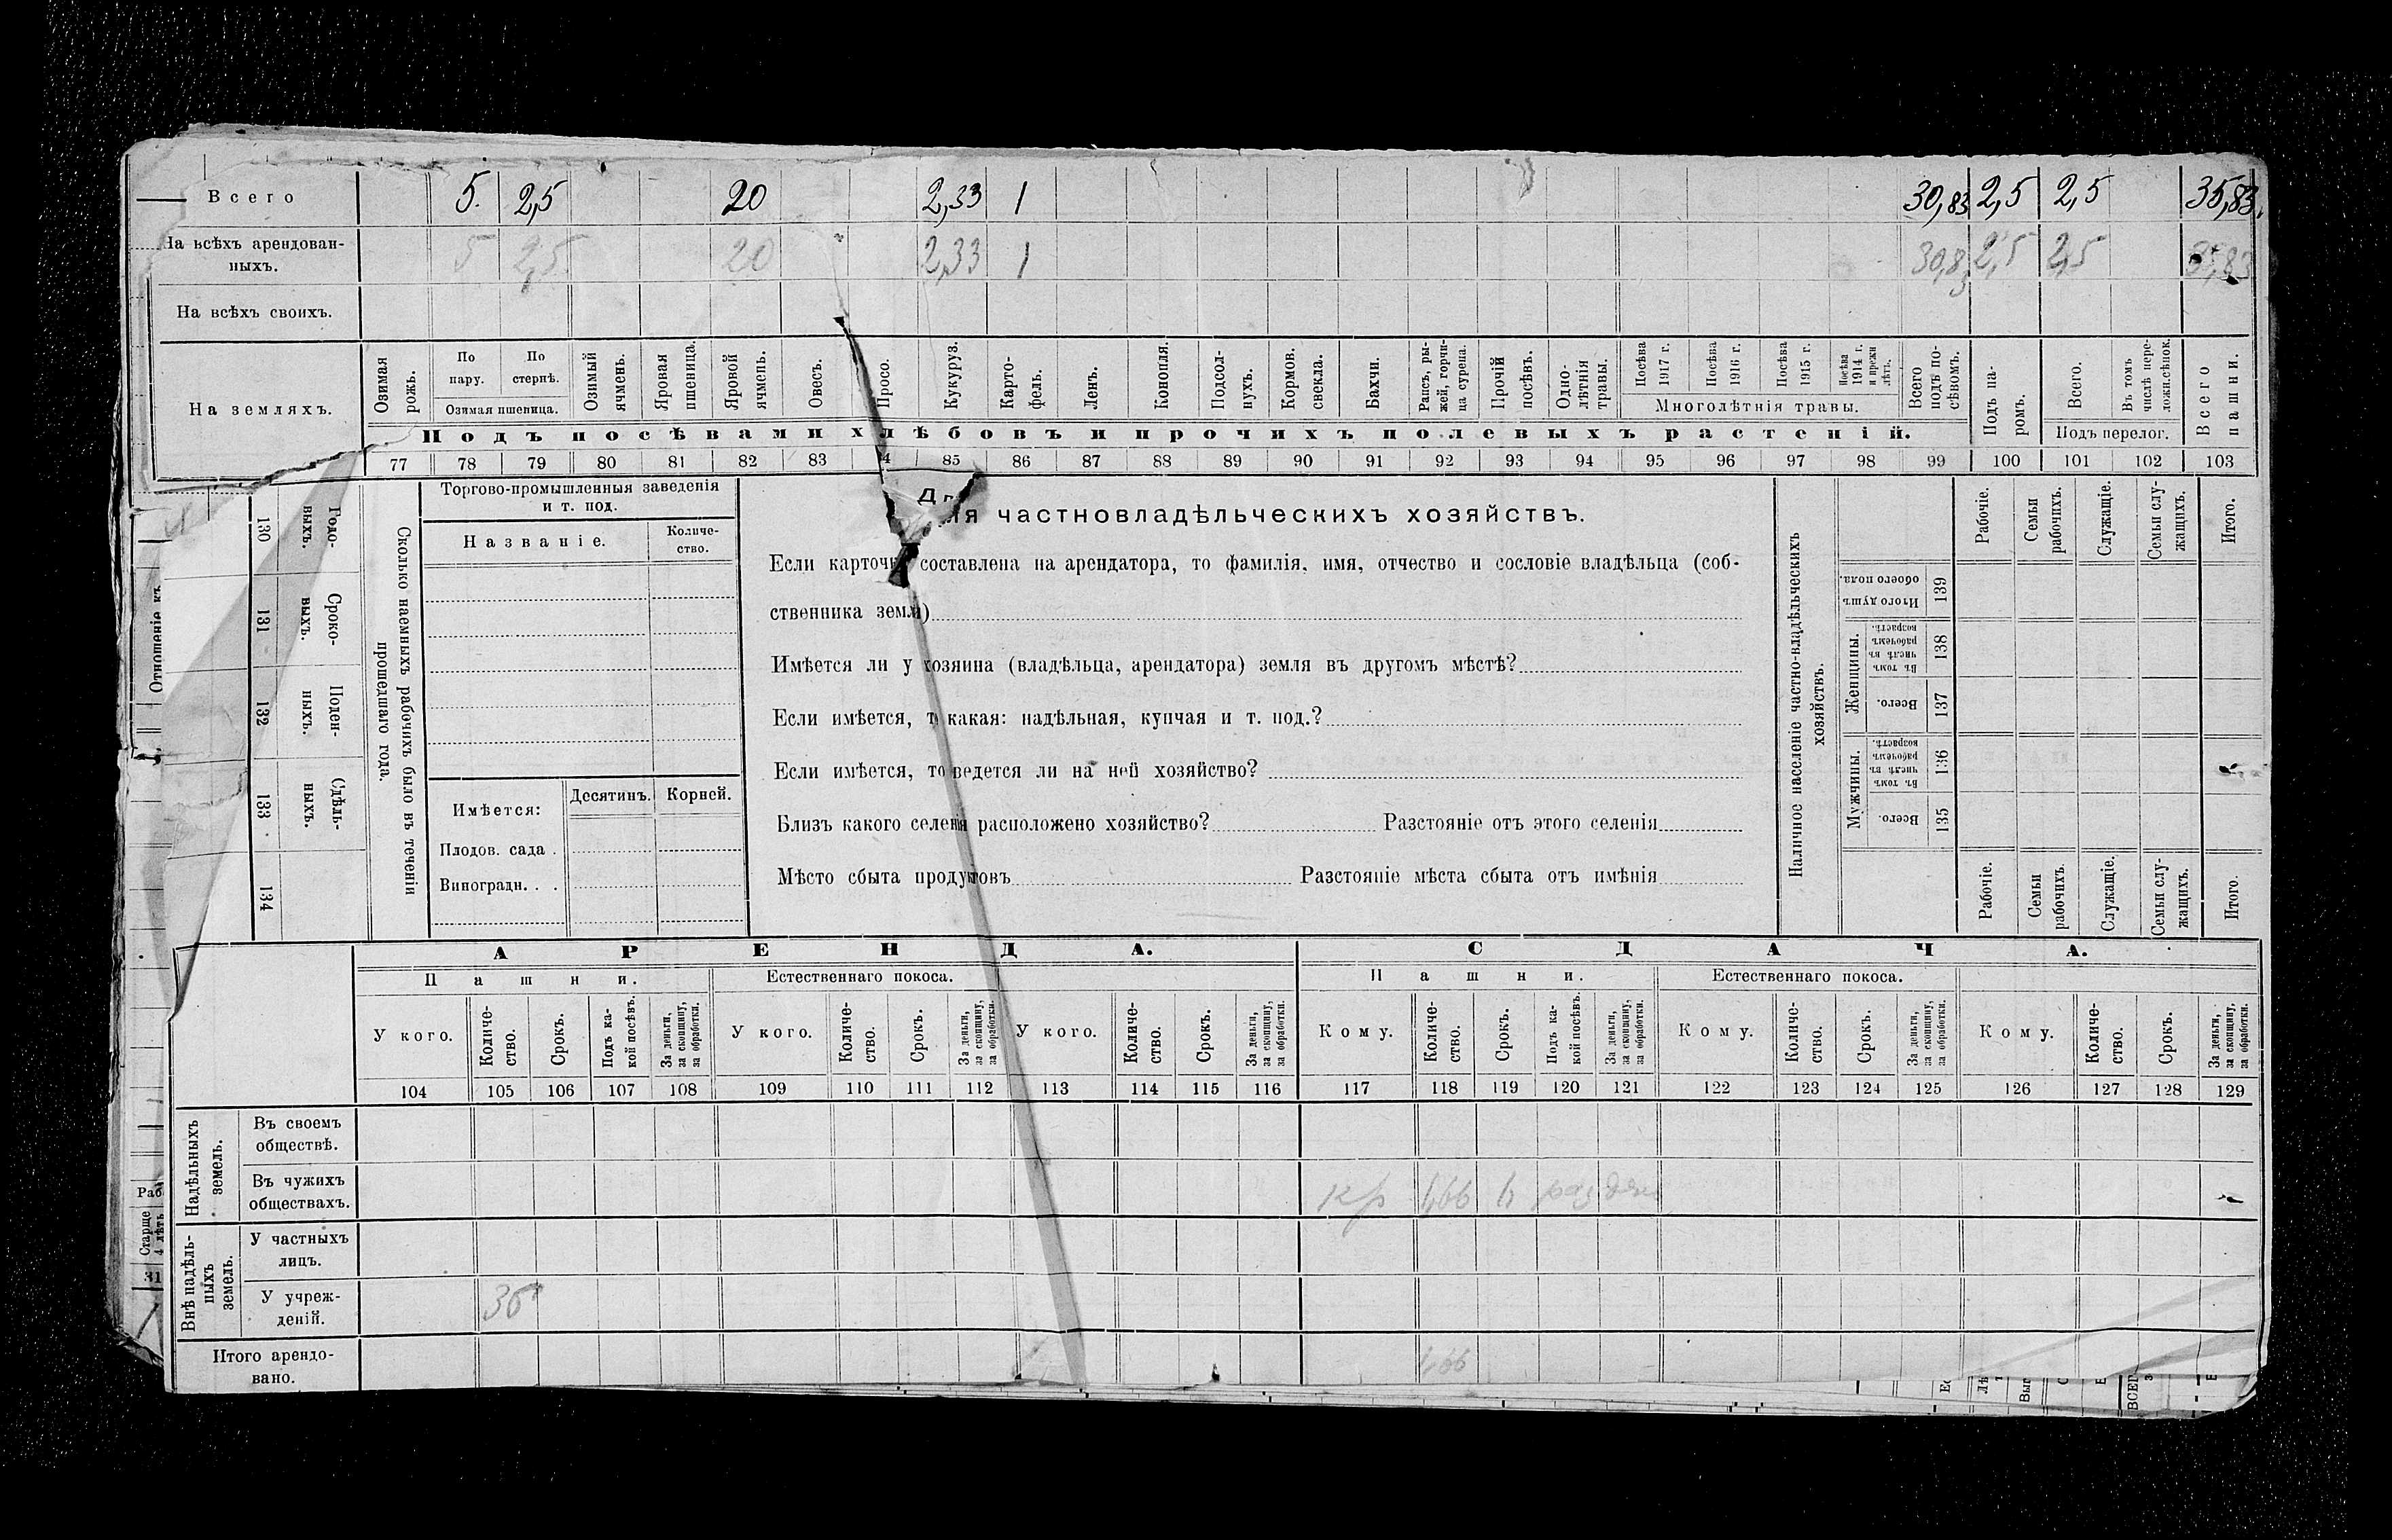 Всего 5. 2,5 20 2,33 1 30,83 2,5 2,5 35,83.
На всѣхъ арендован-
ныхъ. 5 2,5 20 2,33 1 30,83 2,5 2,5
На всѣхъ своихъ.
На земляхъ.
Озимая рожь.
По пару.
По стернѣ.
Озимая пшеница.
Озимый ячмень.
Яровая пшеница.
Яровой ячмень.
Овесъ.
Просо.
Кукуруз.
Карто-
фель.
Ленъ.
Конопля.
Подсол-
нухъ.
Кормов.
свекла.
Бахчи.
Рапсъ, ры-
жей, горчи-
ца сурепа.
Прочій
посѣвъ.
Одно-
лѣтнія
травы.
Посѣва
1917 г.
Посѣва
1916 г.
Посѣва
1915 г.
Посѣва
1914 г.
и прежн
лѣтъ.
Многолѣтнія травы.
Всего
подъ по-
сѣвомъ.
Подъ па-
ромъ.
Всего.
Въ томъ
числѣ пере-
ложн.сѣнок.
Подъ перелог.
Всего
пашни.
Подъ посѣвами хлѣбовъ и прочихъ полевыхъ растеній.
77 78 79 80 81 82 83 4 85 86 87 88 89 90 91 92 93 94 95 96 97 98 99 100 101 102 103
Отношеніе къ
130 Годо-
выхъ.
131 Сроко-
выхъ.
132 Поден-
ныхъ.
133 Сдѣль-
ныхъ.
134
Сколько наемныхъ рабочихъ было въ теченіи
прошедшаго года.
Торгово-промышленныя заведенія
и т. под.
Названіе.
Количе-
ство.
Имѣется: Десятинъ. Корней.
Плодов. сада .
Виноградн. . .
Для частновладѣльческихъ хозяйствъ.
Если карточка составлена на арендатора, то фамилія, имя, отчество и сословіе владѣльца (соб-
ственника земли)
Имѣется ли у хозяина (владѣльца, арендатора) земля въ другомъ мѣстѣ?
Если имѣется, то какая: надѣльная, купчая и т. под.?
Если имѣется, то ведется ли на ней хозяйство?
Близъ какого селенія расположено хозяйство? Разстояніе отъ этого селенія
Мѣсто сбыта продуктовъ Разстояніе мѣста сбыта отъ имѣнія
Наличное населеніе частно-владѣльческихъ
хозяйствъ.
Рабочіе.
Семьи
рабочихъ.
Служащіе.
Семьи слу-
жащихъ.
Итого.
Итого душъ
обоего пола.
139
Женщины.
Въ томъ
числѣ въ
рабочемъ
возрастѣ.
138
Всего.
137
Мужчины.
Въ томъ
числѣ въ
рабочемъ
возрастѣ.
136
Всего.
135
Рабочіе.
Семьи
рабочихъ.
Служащіе.
Семьи слу-
жащихъ.
Итого.
АРЕНДА. СДАЧА.
Пашни. Естественнаго покоса. Пашни. Естественнаго покоса.
У кого.
Количе-
ство.
Срокъ.
Подъ ка-
кой посѣвъ.
За деньги,
за скопщину,
за обработки.
У кого.
Количе-
ство.
Срокъ.
За деньги,
за скопщину,
за обработки.
У кого.
Количе-
ство.
Срокъ.
За деньги,
за скопщину,
за обработки.
Кому.
Количе-
ство.
Срокъ.
Подъ ка-
кой посѣвъ.
За деньги,
за скопщину,
за обработки.
Кому.
Количе-
ство.
Срокъ.
За деньги,
за скопщину,
за обработки.
Кому.
Количе-
ство.
Срокъ.
За деньги,
за скопщину,
за обработки.
104 105 106 107 108 109 110 111 112 113 114 115 116 117 118 119 120 121 122 123 124 125 126 127 128 129
Надѣльныхъ
земель.
Въ своемъ
обществѣ.
Въ чужихъ
обществахъ. кр
Внѣ надѣль-
ныхъ
земель.
У частныхъ
лицъ.
У учреж-
деній.
Итого арендо-
вано.
Раб
Старше
4 лѣтъ
31